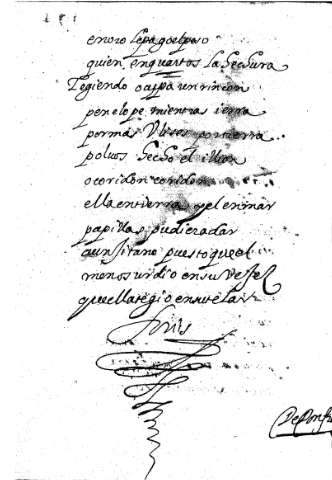 en oro le paga el paso
quien en quartos la hechura
Tegiendo ocupa un rincon
penelope mientras ierra
por mar Ulises por tierra
polvos hecho el ilion
o coridon coridon
ella en tierra y el en mar
papillas pudiera dar
a un jitano puesto que el
menos urdio en su
que ella tegio en su telar
finis